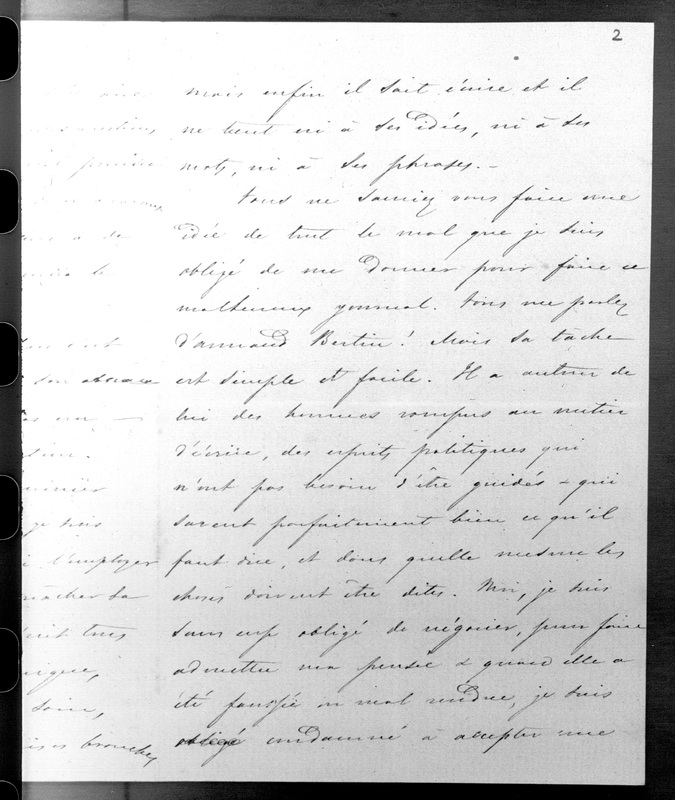 2
mais enfin il sait écrire et il
ne tient ni à ses idées, ni à ses
mots, ni à ses phrases. –
Vous ne sauriez vous faire une
idée de tout le mal que je suis
obligé de me donner pour faire ce
malheureux journal. Vous me parlez
d'Armand Bertin! Mais sa tâche
est simple et facile. Il a autour de
lui des hommes rompus au métier
d'écrire, des esprits politiques qui
n'ont pas besoin d'être guidés & qui
savent parfaitement bien ce qu'il
faut dire, et dans quelle mesure les
choses doivent être dites. Moi, je suis
sans cesse obligé de négocier, pour faire
admettre ma pensée & quand elle a
été faussée ou mal rendue, je suis
obligé condamné à accepter une
son
je suis
l'employer
tous